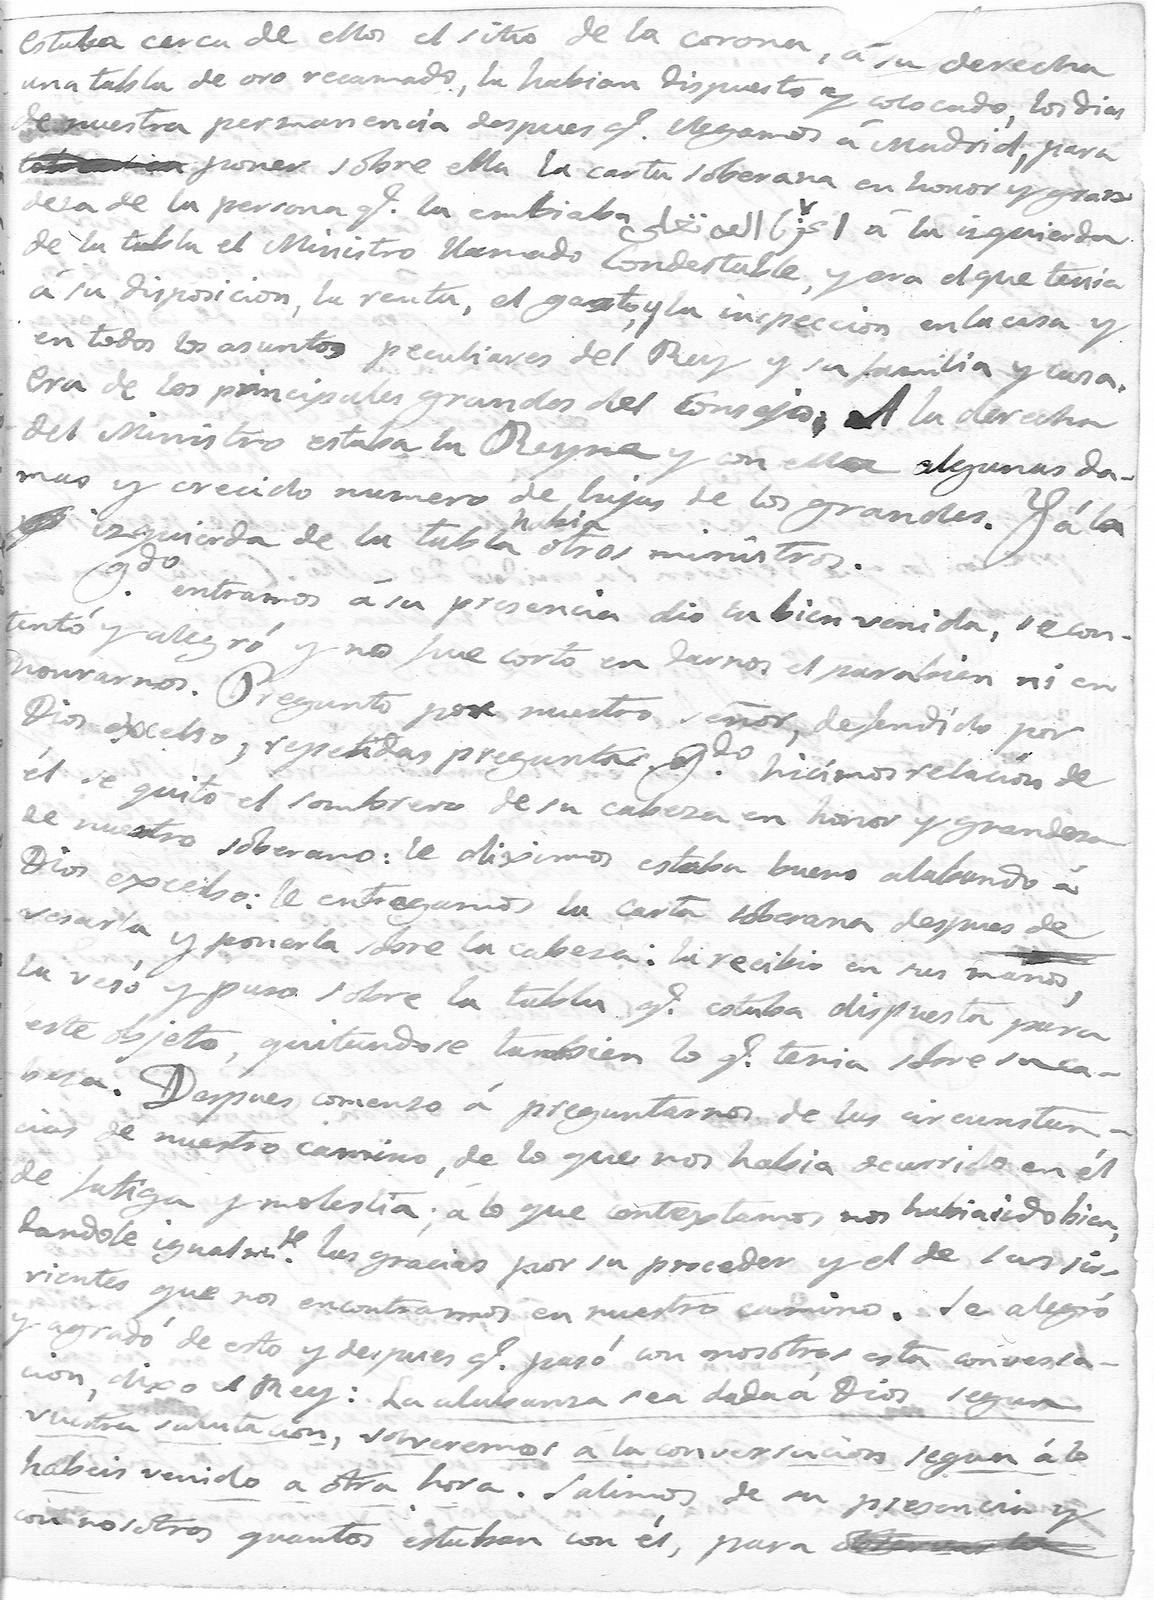 estaba cerca de ellos el sitio de la corona, á su derecha
una tabla de oro recamado, la habian dispuesto y colocado, los dias
de nuestra permanencia despues q.e llegamos á Madrid, para
poner sobre ella la carta soberana en honor y gran
deza de la persona q.e la embiaba á la izquierda
de la tabla el Ministro llamado Condestable, y era el que tenia
á su disposicion, la renta, el gasto, y la inspeccion en la casa y
en todos los asuntos peculiares del Rey y su familia y casa.
Era de los principales grandes del Consejo; A la derecha
del Ministro estaba la Reyna y con ella algunas da-
mas y crecido numero de hijas de los grandes. Y á la
izquierda de la tabla había otros ministros.
Q.do entramos á su presencia dio la bien venida, se con-
tentó y alegró y no fue corto en darnos el parabien ni en
honrarnos. Preguntó por nuestro señor, defendido por
Dios excelso, repetidas preguntas. Q.do hicimos relación de
él se quitó el sombrero de su cabeza en honor y grandeza
de nuestro soberano: le diximos estaba bueno alabando á
Dios excelso: le entregamos la carta soberana despues de
vesarla y ponerla sobre la cabeza: la recibio en sus manos,
la vesó y puso sobre la tabla q.e estaba dispuesta para
este objeto, quitandose tambien lo q.e tenia sobre su ca-
beza. Despues comenzo á preguntarnos de las circunstan-
cias de nuestro camino, de lo que nos habia ocurrido en él
de fatiga y molestia; á lo que contextamos nos habia ido bien,
dandole igualm.te las gracias por su proceder y el de sus sir-
vientes que nos encontramos en nuestro camino. Se alegró
y agradó de esto y despues q.e pasó con nosotros esta conversa-
cion, dixo el Rey: La alabanza sea dada á Dios segun
vuestra salutacion, volveremos á la conversacion segun á lo
habeis venido a otra hora. Salimos de su presencia y
con nosotros quantos estaban con él, para